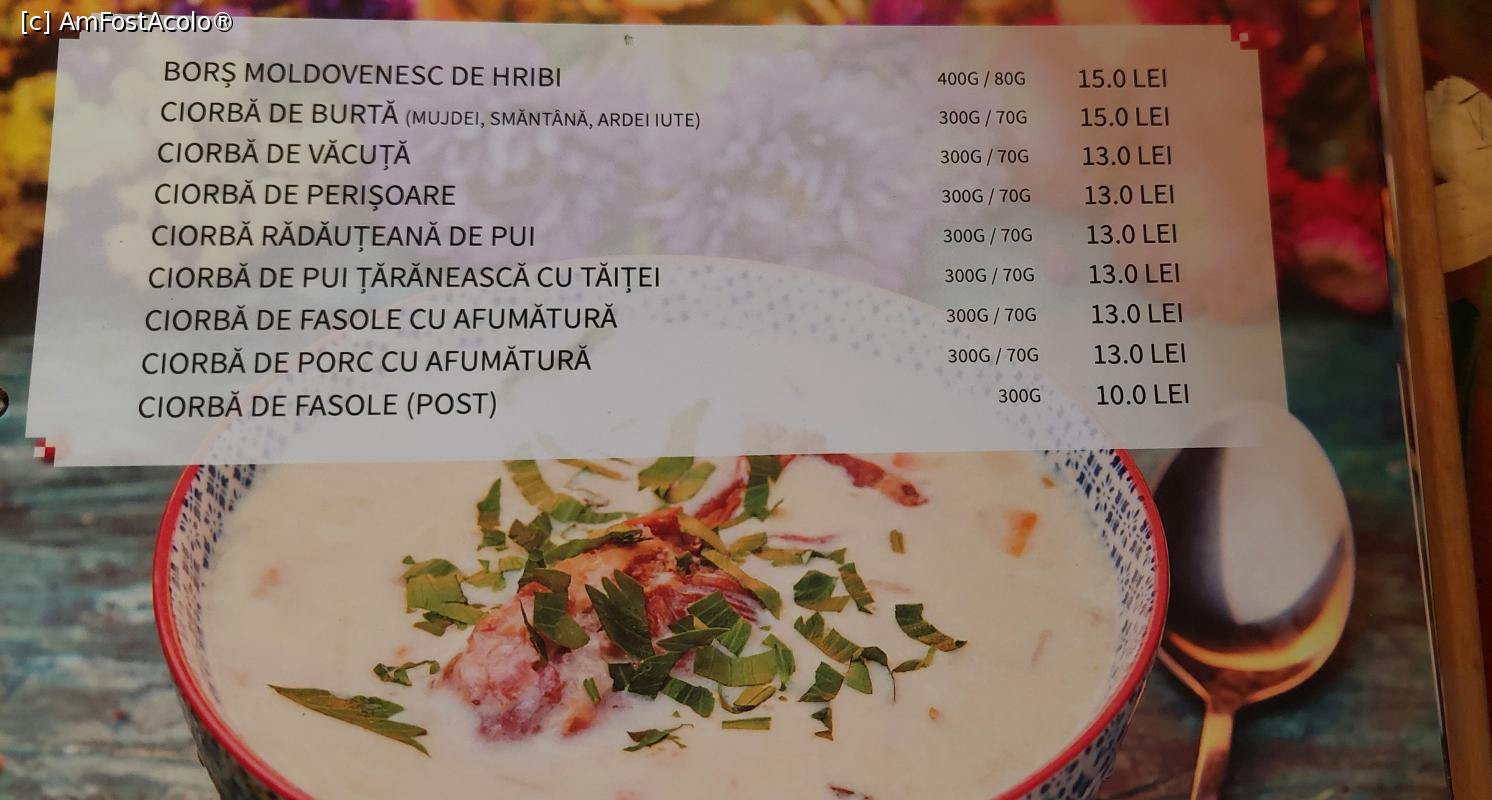 [c] AmFostAcolo®
BORȘ MOLDOVENESC DE HRIBI 400G / 80G 15.0 LEI
CIORBĂ DE BURTĂ (MUJDEI, SMĂNTÂNĂ, ARDEI IUTE) 300G / 70G 15.0 LEI
CIORBĂ DE VĂCUȚĂ 300G / 70G 13.0 LEI
CIORBĂ DE PERIȘOARE 300G / 70G 13.0 LEI
CIORBĂ RĂDĂUȚEANĂ DE PUI 300G / 70G 13.0 LEI
CIORBĂ DE PUI ȚĂRĂNEASCĂ CU TĂIȚEI 300G / 70G 13.0 LEI
CIORBĂ DE FASOLE CU AFUMĂTURĂ 300G / 70G 13.0 LEI
CIORBĂ DE PORC CU AFUMĂTURĂ 300G / 70G 13.0 LEI
CIORBĂ DE FASOLE (POST) 300G 10.0 LEI